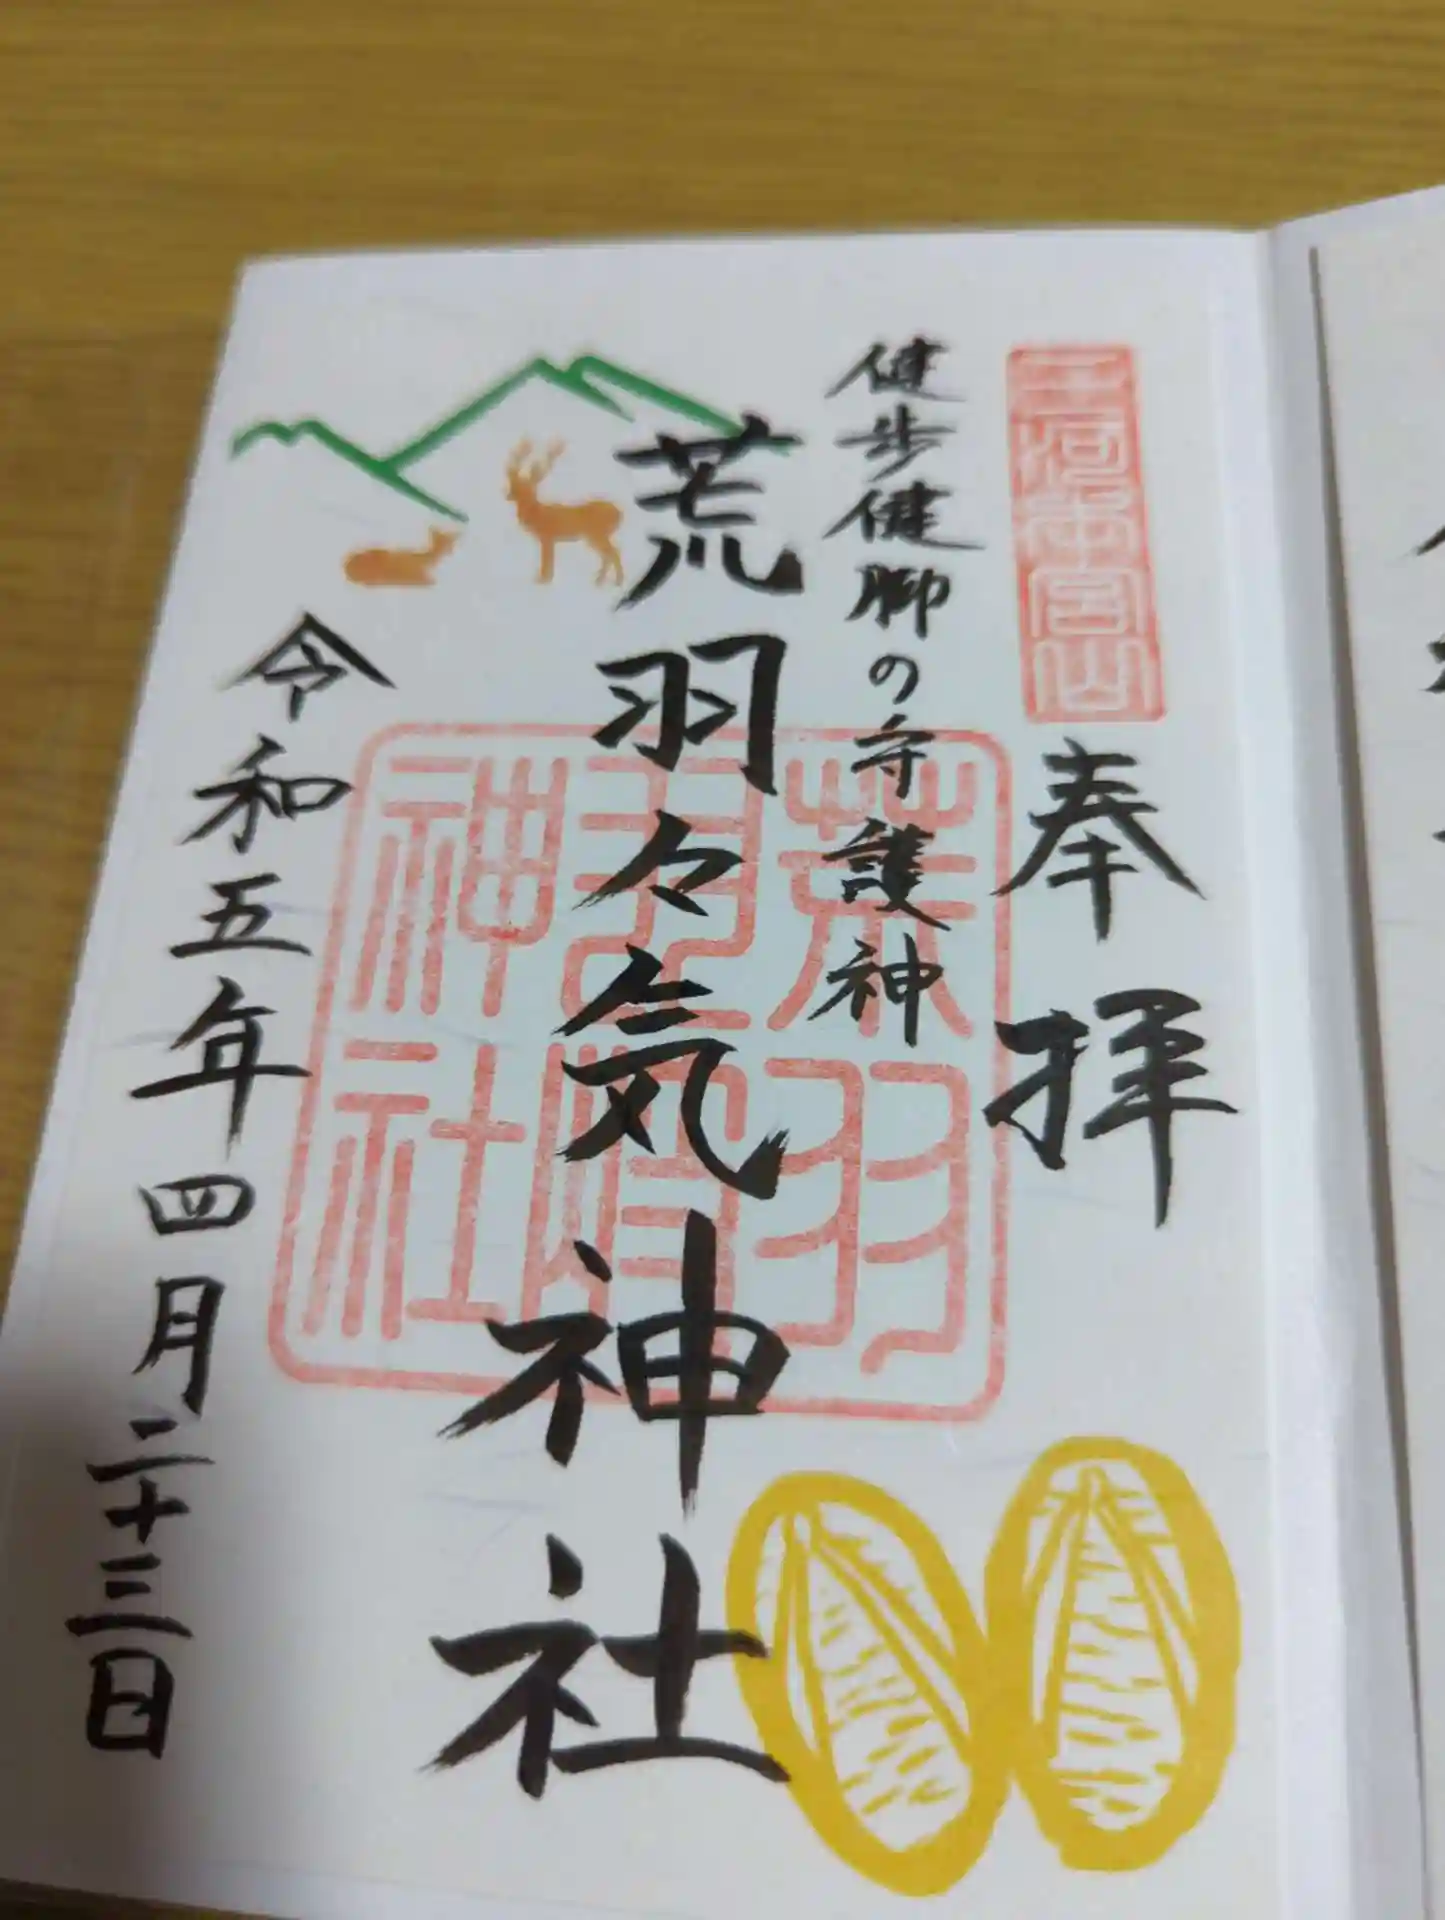 三河本宮山
奉拝
健歩健脚の守護神
荒羽々気神社
荒羽
神社
令和五年四月二十三日